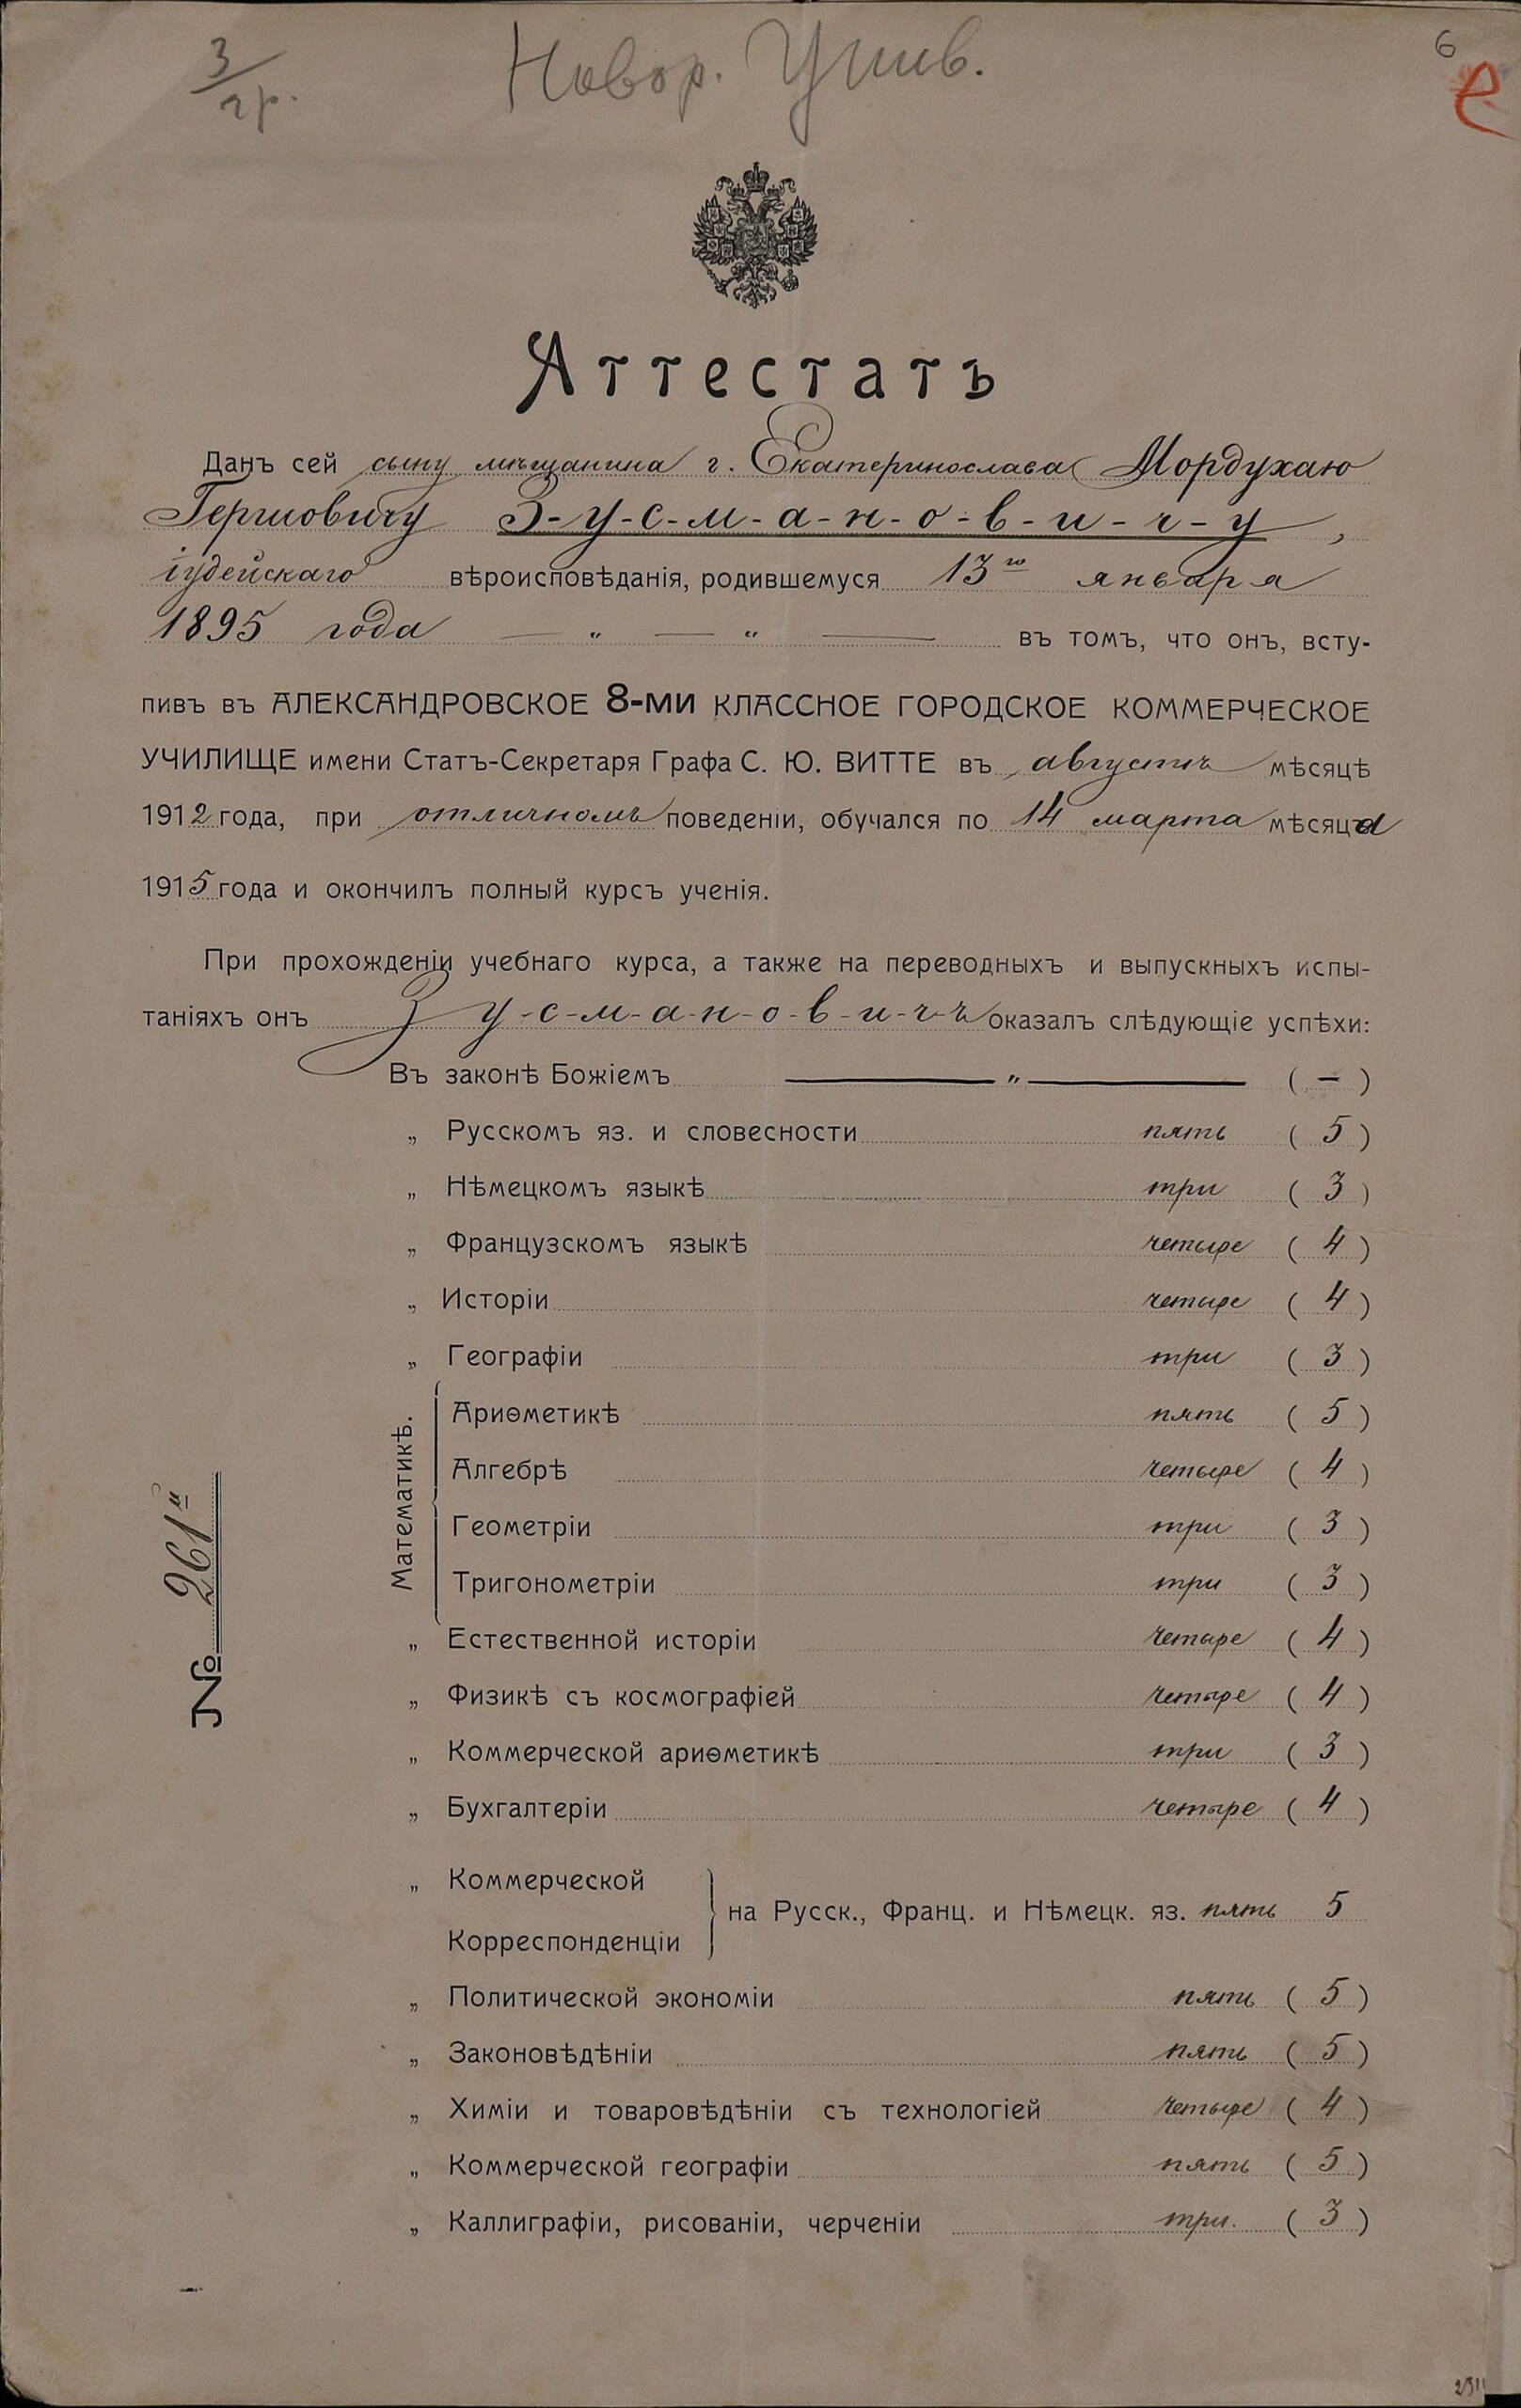 3/гр.
Новор. Унив.
6
е
Аттестатъ
Данъ сей сыну мѣщанина г. Екатеринослава Мордухаю
Гершовичу З-у-с-м-а-н-о-в-и-ч-у,
іудейскаго вѣроисповѣданія, родившемуся 13го января
1895 года — „ — „ — въ томъ, что онъ, всту-
пивъ въ АЛЕКСАНДРОВСКОЕ 8-МИ КЛАССНОЕ ГОРОДСКОЕ КОММЕРЧЕСКОЕ
УЧИЛИЩЕ имени Статъ-Секретаря Графа С. Ю. ВИТТЕ въ августѣ мѣсяцѣ
1912 года, при отличномъ поведеніи, обучался по 14 марта мѣсяца
1915 года и окончилъ полный курсъ ученія.
При прохожденіи учебнаго курса, а также на переводныхъ и выпускныхъ испы-
таніяхъ онъ З у-с-м-а-н-о-в-и-ч-ъ оказалъ слѣдующіе успѣхи:
Въ законѣ Божіемъ — „ — ( — )
„ Русскомъ яз. и словесности пять ( 5 )
„ Нѣмецкомъ языкѣ три ( 3 )
„ Французскомъ языкѣ четыре ( 4 )
„ Исторіи четыре ( 4 )
„ Географіи три ( 3 )
Математикѣ.
Ариѳметикѣ пять ( 5 )
Алгебрѣ четыре ( 4 )
Геометріи три ( 3 )
Тригонометріи три ( 3 )
„ Естественной исторіи четыре ( 4 )
„ Физикѣ съ космографіей четыре ( 4 )
„ Коммерческой ариѳметикѣ три ( 3 )
„ Бухгалтеріи четыре ( 4 )
„ Коммерческой
Корреспонденціи
на Русск., Франц. и Нѣмецк. яз. пять 5
„ Политической экономіи пять ( 5 )
„ Законовѣдѣніи пять ( 5 )
„ Химіи и товаровѣдѣніи съ технологіей четыре ( 4 )
„ Коммерческой географіи пять ( 5 )
„ Каллиграфіи, рисованіи, черченіи три. ( 3 )
№ 261й